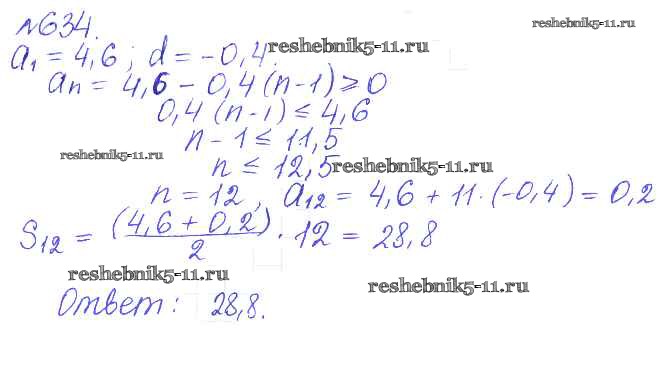 №634.
reshebnik5-11.ru
a₁ = 4,6 ; d = -0,4.
reshebnik5-11.ru
aₙ = 4,6 - 0,4 (n-1) ⩾ 0
0,4 (n-1) ≤ 4,6
n - 1 ≤ 11,5
reshebnik5-11.ru
n ≤ 12,5
reshebnik5-11.ru
n = 12 , a₁₂ = 4,6 + 11·(-0,4) = 0,2
S₁₂ = (4,6 + 0,2)/2 · 12 = 28,8
reshebnik5-11.ru
reshebnik5-11.ru
Ответ: 28,8.